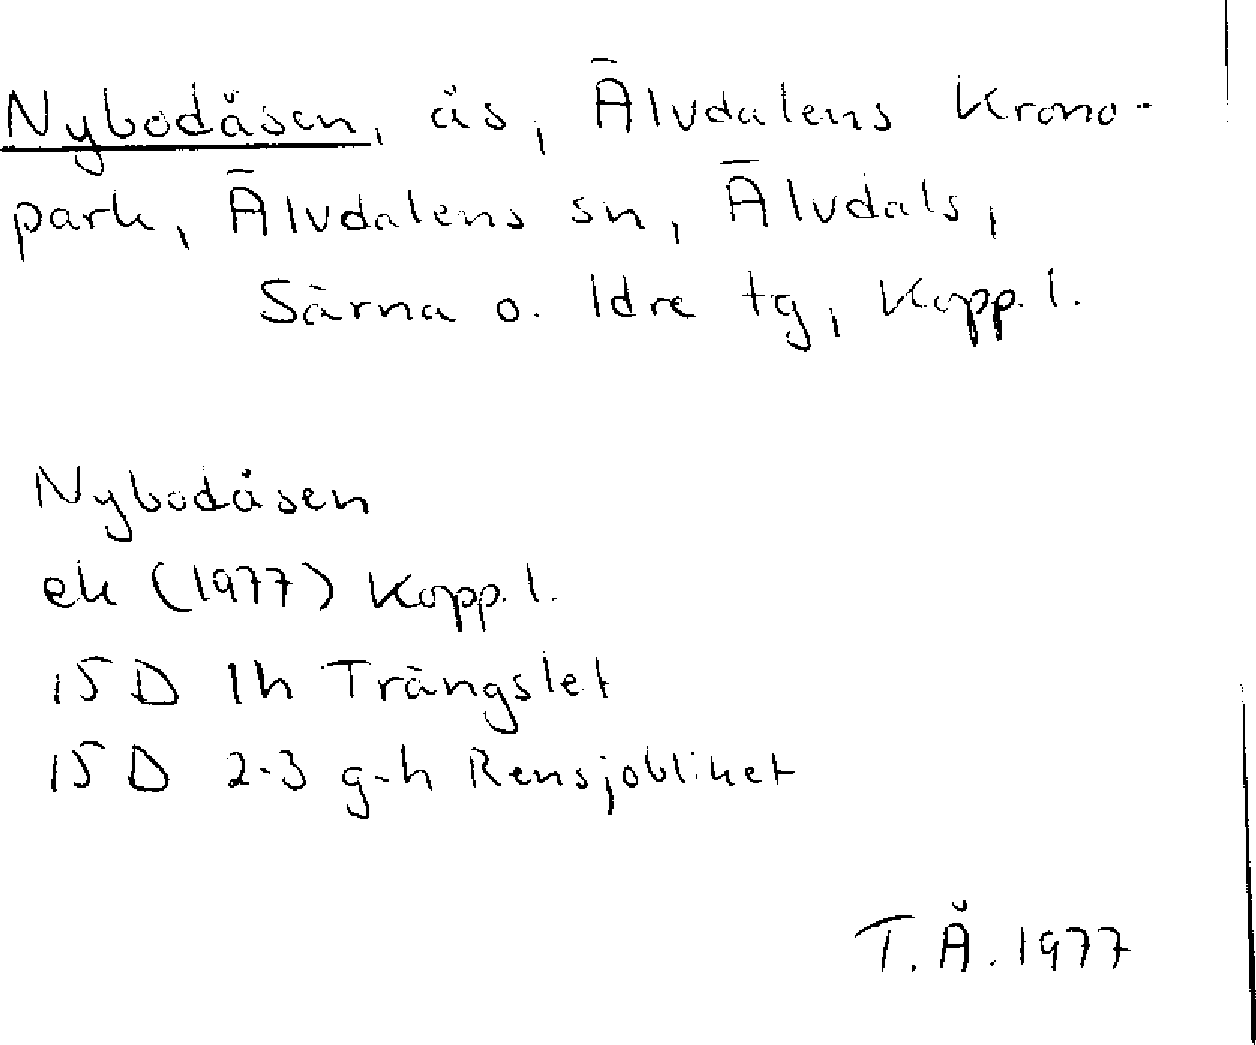 Nybodåsen, ås, Älvdalens Krono-
park, Älvdalens sn, Älvdals,
Särna o. Idre tg, Kopp. l.
Nybodåsen
ek (1977) Kopp. l.
15 D 1h Trängslet
15 D 2-3 g-h Rensjobliket
T. Å. 1977